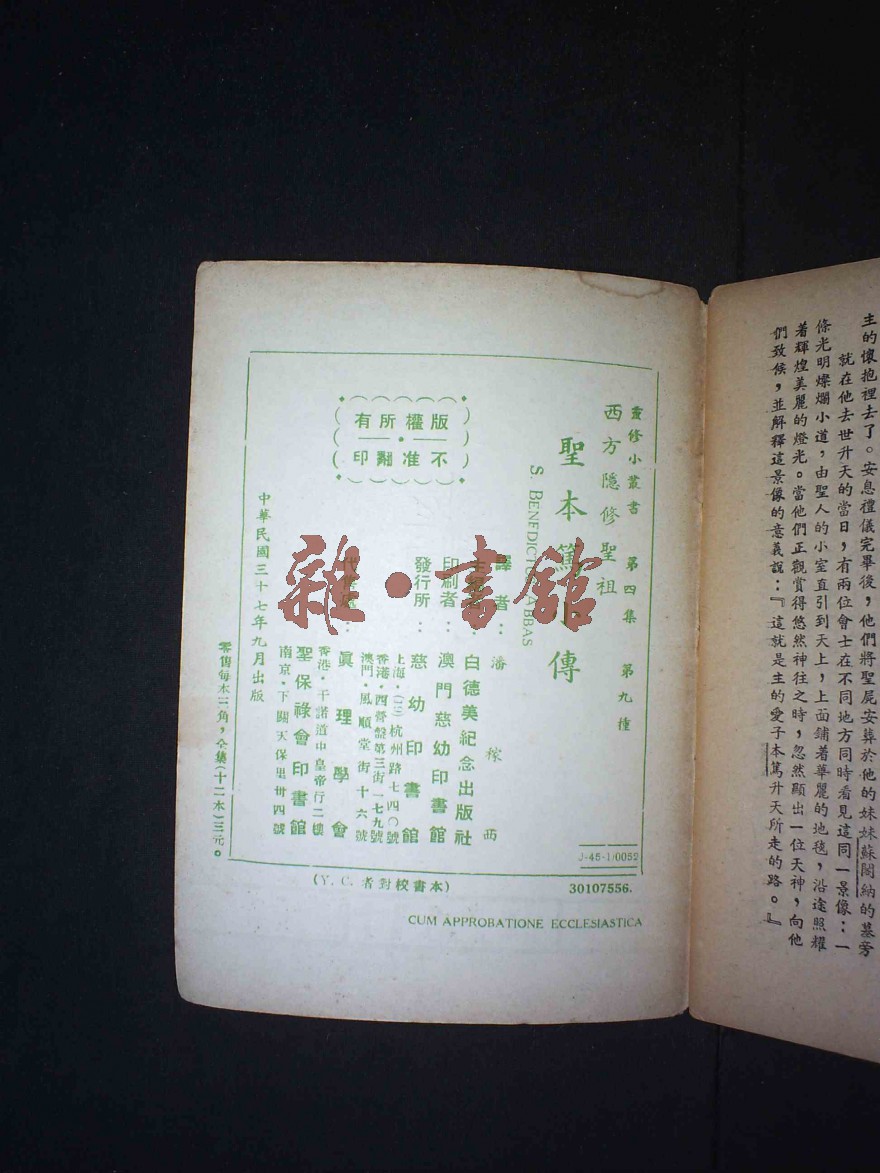 主的懷抱裡去了。安息禮儀完畢後，他們將聖屍安葬於他的妹妹蘇閣納的墓旁
就在他去世升天的當日，有兩位會士在不同地方同時看見這同一景像：一
條光明燦爛小道，由聖人的小室直引到天上，上面鋪着華麗的地毯，沿途照耀
着輝煌美麗的燈光。當他們正觀賞得悠然神往之時，忽然顯出一位天神，向他
們致候，並解釋這景像的意義說：『這就是主的愛子本篤升天所走的路。』
靈修小叢書 第四集 第九種
西方隱修聖祖
聖本篤小傳
S. BENEDICTUS ABBAS
譯者：潘稼西
白德美紀念出版社
印刷者：澳門慈幼印書館
發行所：慈幼印書館
上海・(三)杭州路七四〇號
香港・西營盤第三街一七九號
澳門・風順堂街十六號
真理學會
香港・干諾道中皇帝行二樓
聖保祿會印書館
南京・下關天保里卅四號
版權所有
不准翻印
中華民國三十七年九月出版
零售每本三角，全集(十二本)三元。
J-45-1/0052
30107556.
(Y. C. 者對校書本)
CUM APPROBATIONE ECCLESIASTICA
雜・書館